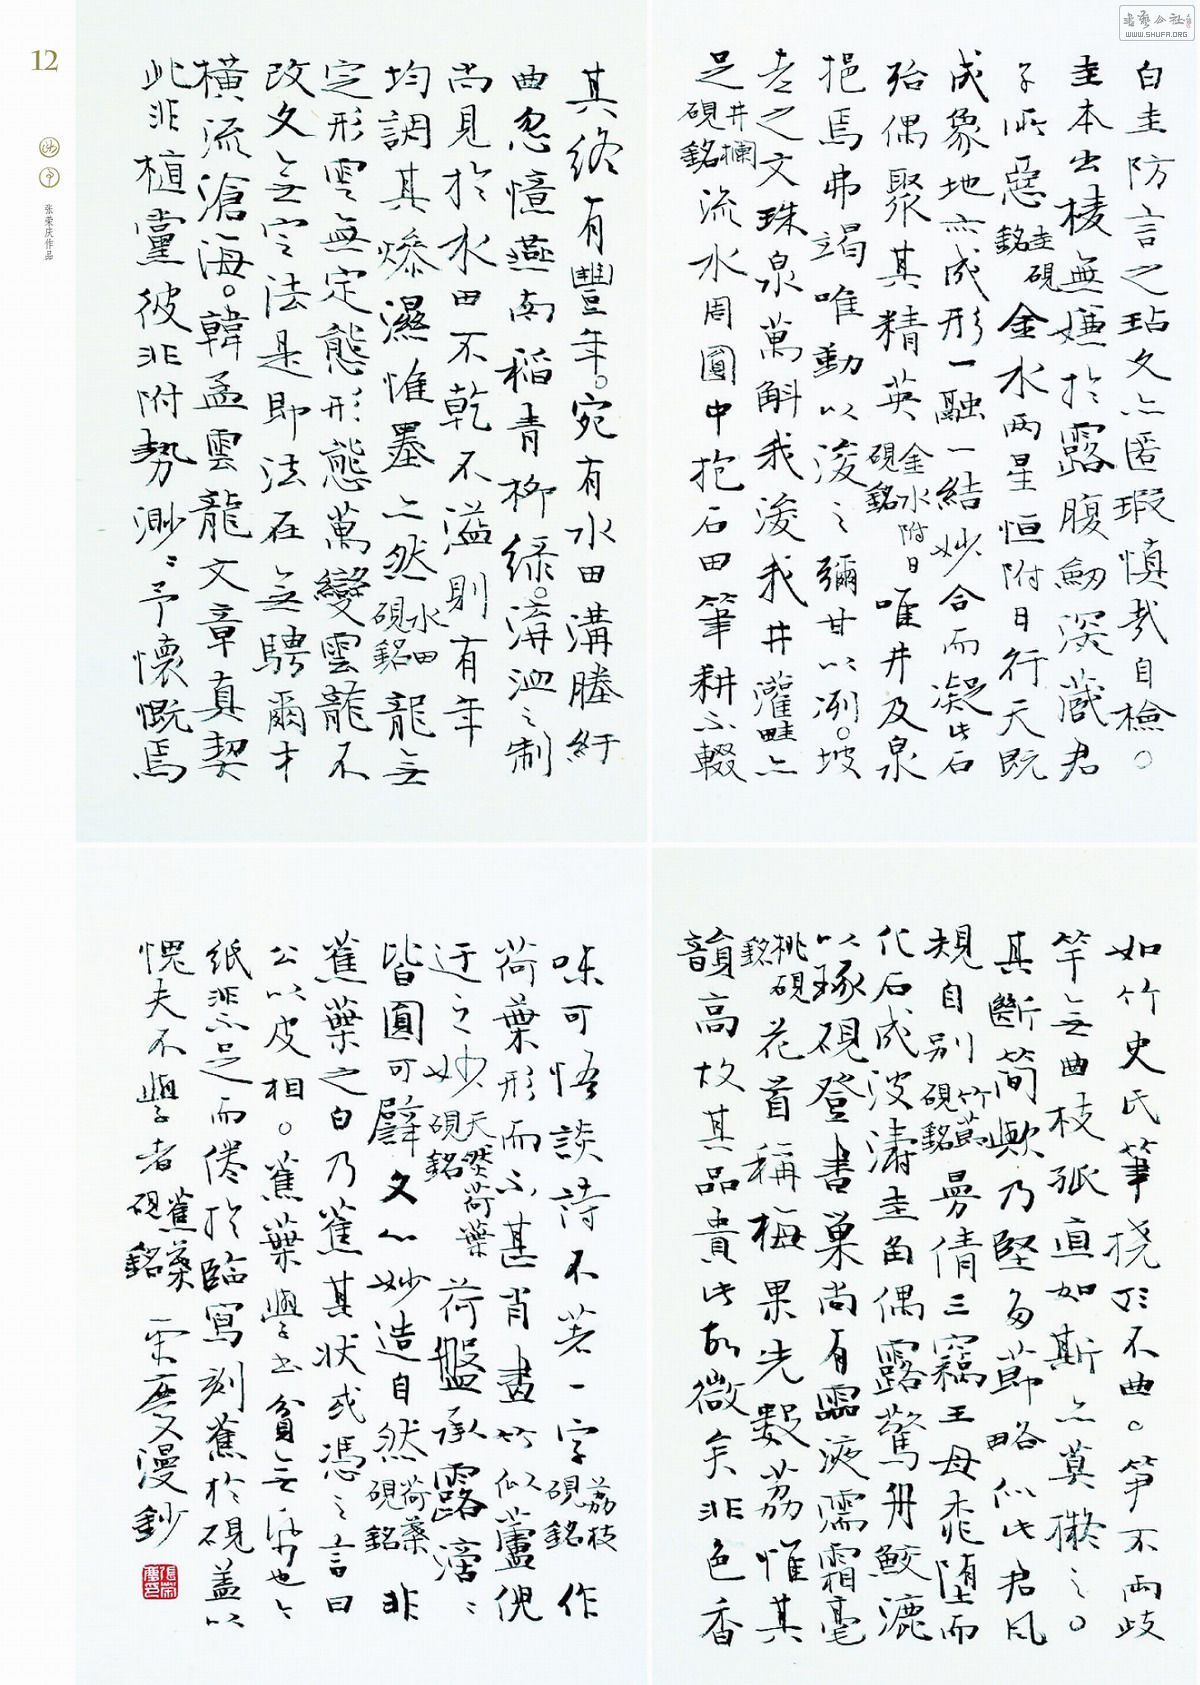 书艺公社
WWW.SHUFA.ORG
12
张荣庆作品
白圭防言之玷文亦匿瑕慎哉自檢。
圭本出棱無嫌於露腹劒深藏君
子所惡圭硯銘金水兩星恒附日行天既
成象地亦成形一融一結妙合而凝此石
殆偶聚其精英金水附日硯銘唯井及泉
挹焉弗竭唯動以浚之彌甘以冽。坡
老之文珠泉萬斛我浚我井灌畦亦
足井欄硯銘流水周圓中抱石田筆耕不輟
其終有豐年。宛有水田溝塍紆
曲忽憶燕南稻青柳綠。溝洫之制
尚見於水田不乾不溢則有年
均調其燥濕惟墨亦然水田硯銘龍無
定形雲無定態形態萬變雲龍不
改文無定法是即法在無騁爾才
橫流滄海。韓孟雲龍文章真契
此非植黨彼非附勢渺渺予懷慨焉
如竹史氏筆撓於不曲。筍不兩歧
竿無曲枝孤直如斯亦莫擬之。
其斷簡歟乃堅多節略似此君風
規自別竹節硯銘曼倩三竊王母桃墮而
化石成波濤圭角偶露驚舟鮫漉
以琢硯登書巢尚有靈液濡霜毫
桃硯銘花首稱梅果先數荔惟其
韻高故其品貴此故微矣非色香
味可悟談詩不著一字荔枝硯銘作
荷葉形而不甚肖畫竹似蘆倪
迂之妙天然荷葉硯銘荷盤承露滴滴
皆圓可譬文心妙造自然荷葉硯銘非
蕉葉之白乃蕉其狀或馮之言曰
公以皮相。蕉葉學書貧無紙也
紙非不足而倦於臨寫刻蕉於硯蓋以
愧夫不學者蕉葉硯銘 榮慶漫鈔